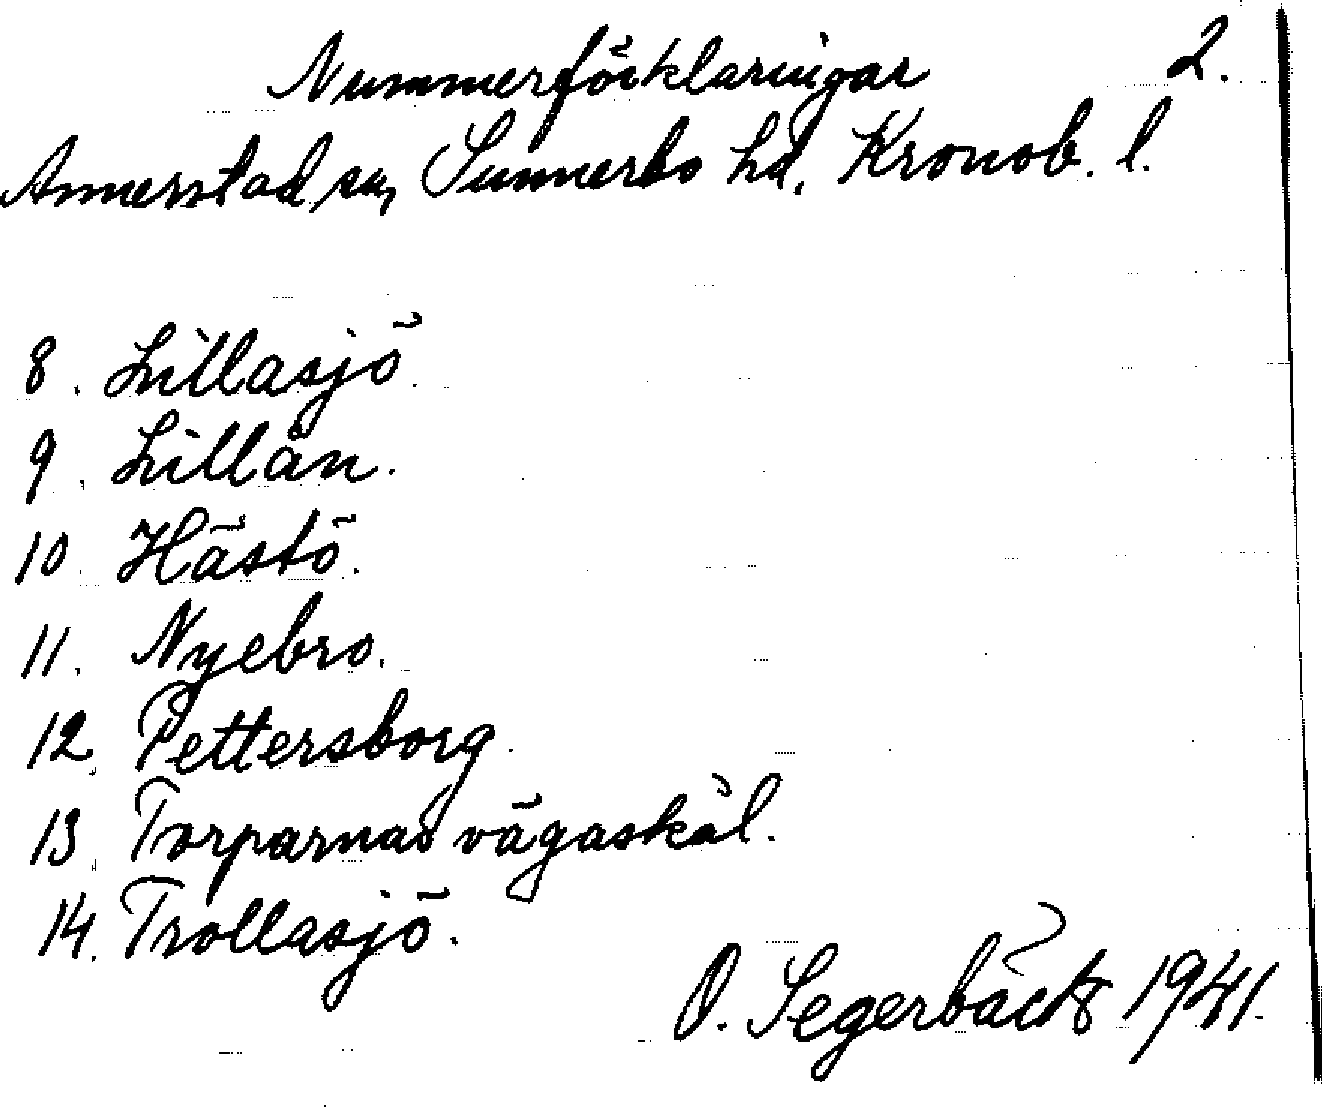 Nummerförklaringar 2.
Annerstad sn, Sunnerbo hd. Kronob. l.
8. Lillasjö.
9. Lillån.
10. Hästö.
11. Nyebro.
12. Pettersborg.
13. Torparnas vägaskäl.
14. Trollasjö.
O. Segerbäck 1941.